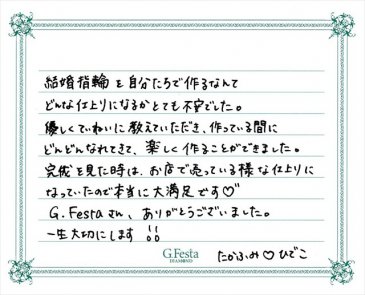 結婚指輪を自分たちで作るなんて
どんな仕上りになるかとても不安でした。
優しくていねいに教えていただき、作っている間に
どんどんなれてきて、楽しく作ることができました。
完成を見た時は、お店で売っている様な仕上りに
なっていたので本当に大満足です♡
G.Festaさん、ありがとうございました。
一生大切にします!!
G.Festa
DIAMOND
たかふみ♡ひでこ